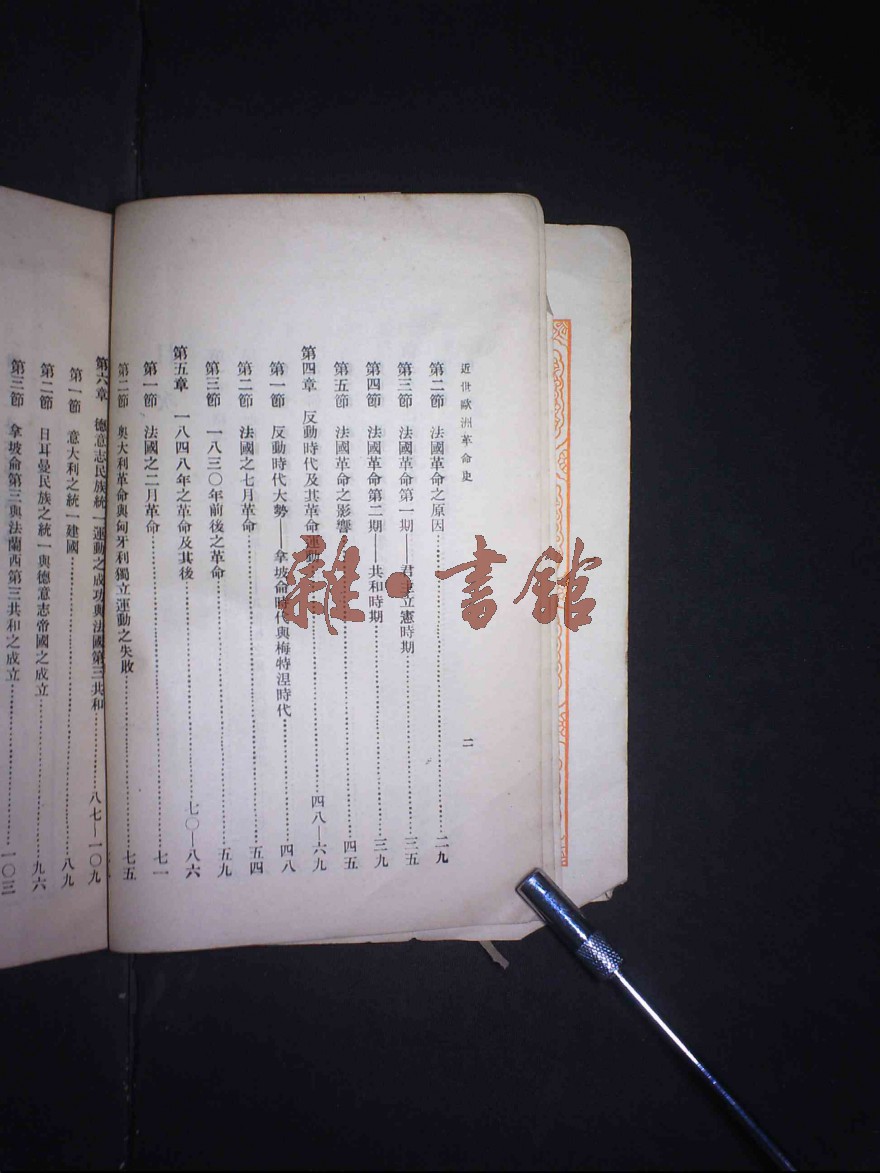 近世歐洲革命史
二
第二節　法國革命之原因…………二九
第三節　法國革命第一期——君主立憲時期…………三五
第四節　法國革命第二期——共和時期…………三九
第五節　法國革命之影響…………四五
第四章　反動時代及其革命運動…………四八—六九
第一節　反動時代大勢——拿坡侖時代與梅特涅時代…………四八
第二節　法國之七月革命…………五四
第三節　一八三〇年前後之革命…………五九
第五章　一八四八年之革命及其後…………七〇—八六
第一節　法國之二月革命…………七一
第二節　奧大利革命與匈牙利獨立運動之失敗…………七五
第六章　德意志民族統一運動之成功與法國第三共和…………八七—一〇九
第一節　意大利之統一建國…………八九
第二節　日耳曼民族之統一與德意志帝國之成立…………九六
第三節　拿坡侖第三與法蘭西第三共和之成立…………一〇三
雜·書館